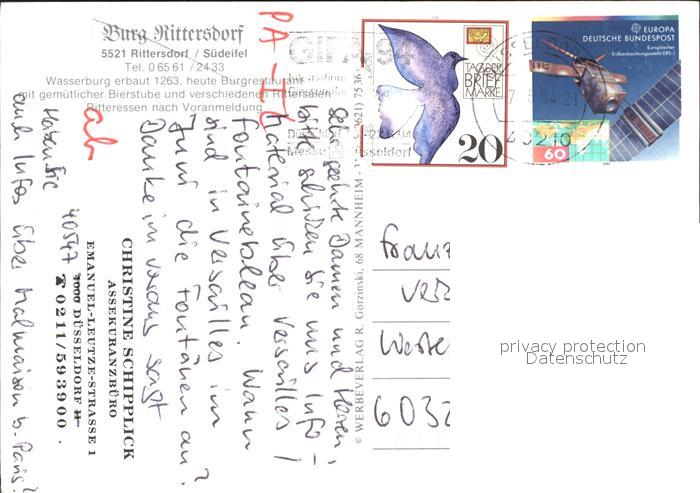 Burg Rittersdorf
5521 Rittersdorf / Südeifel
Tel. 0 65 61 / 24 33
Wasserburg erbaut 1263, heute Burgrestaurant
mit gemütlicher Bierstube und verschiedenen Rittersälen
Ritteressen nach Voranmeldung
PA - E
ab
Sehr geehrte Damen und Herren,
bitte schicken Sie uns Info-
Material über Versailles /
Fontainebleau. Wann
sind in Versailles im
Juni die Fontänen an?
Danke im voraus sagt
CHRISTINE SCHIPPLICK
ASSEKURANZBÜRO
EMANUEL-LEUTZE-STRASSE 1
40547 DÜSSELDORF 11
☎ 0211/593900.
Haben Sie
auch Infos über Malmaison b. Paris?
© WERBEVERLAG R. Gorzinski, 68 MANNHEIM
TAG DER
BRIEF
MARKE
20
EUROPA
DEUTSCHE BUNDESPOST
Europäischer
Erdbeobachtungssatellit ERS-1
60
40210
Messe Düsseldorf
Franz
Ver
Weste
6032
privacy protection
Datenschutz